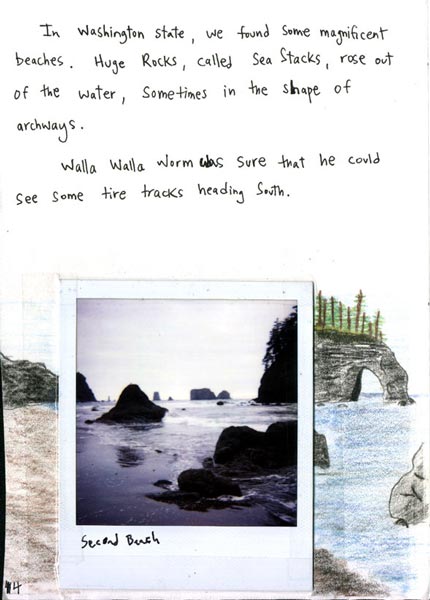 In Washington state, we found some magnificent
beaches. Huge Rocks, called Sea Stacks, rose out
of the water, sometimes in the shape of
archways.
Walla Walla Worm was sure that he could
see some tire tracks heading South.
Second Beach
14